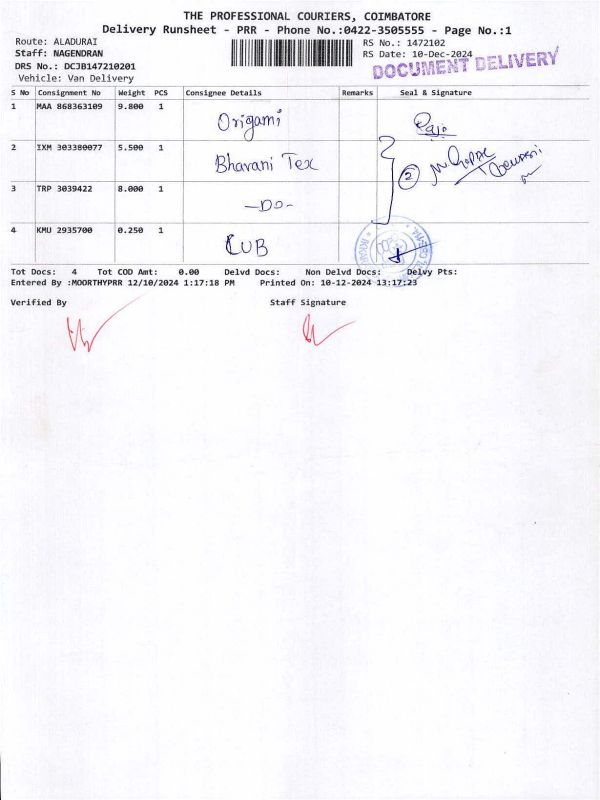 THE PROFESSIONAL COURIERS, COIMBATORE
Delivery Runsheet - PRR - Phone No.:0422-3505555 - Page No.:1
Route: ALADURAI
RS No.: 1472102
Staff: NAGENDRAN
RS Date: 10-Dec-2024
DRS No.: DCJB147210201
DOCUMENT DELIVERY
Vehicle: Van Delivery
S No Consignment No Weight PCS Consignee Details Remarks Seal & Signature
1 MAA 868363109 9.800 1 Origami Raja
2 IXM 303380077 5.500 1 Bhavani Tex 2
3 TRP 3039422 8.000 1 -DO-
4 KMU 2935700 0.250 1 CUB
Tot Docs: 4 Tot COD Amt: 0.00 Delvd Docs: Non Delvd Docs: Delvy Pts:
Entered By :MOORTHYPRR 12/10/2024 1:17:18 PM Printed On: 10-12-2024 13:17:23
Verified By Staff Signature